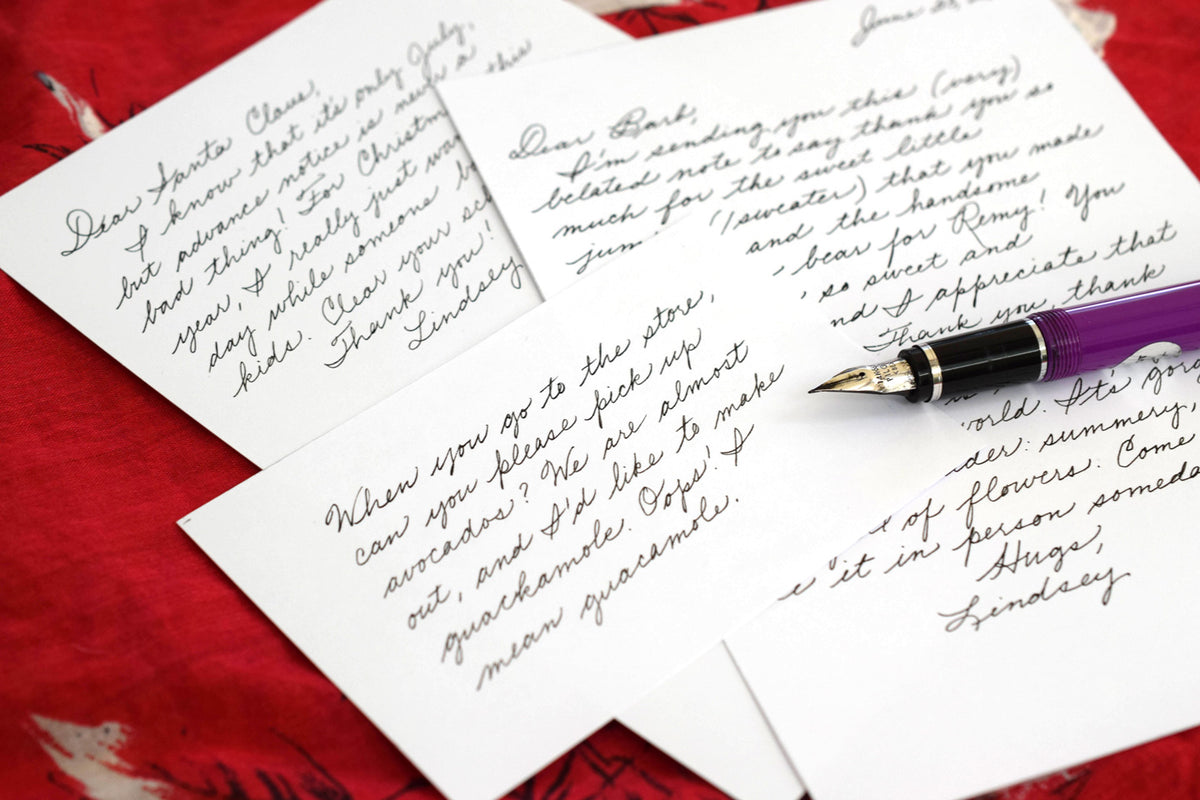 Dear Santa Claus,
I know that it's only July,
but advance notice is never a
bad thing! For Christm this
year, I really just wa
day while someone
kids. Clear your
Thank you!
Lindsey
Dear Barb,
I'm sending you this (very)
belated note to say thank you so
much for the sweet little
(/sweater) that you made
and the handsome
bear for Remy! You
so sweet and
nd I appreciate that
Thank you, thank
world. It's
summery,
of flowers. Come
it in person someda
Hugs,
Lindsey
When you go to the store,
can you please pick up
avocados? We are almost
out, and I'd like to make
guackamole. Oops! I
mean guacamole.